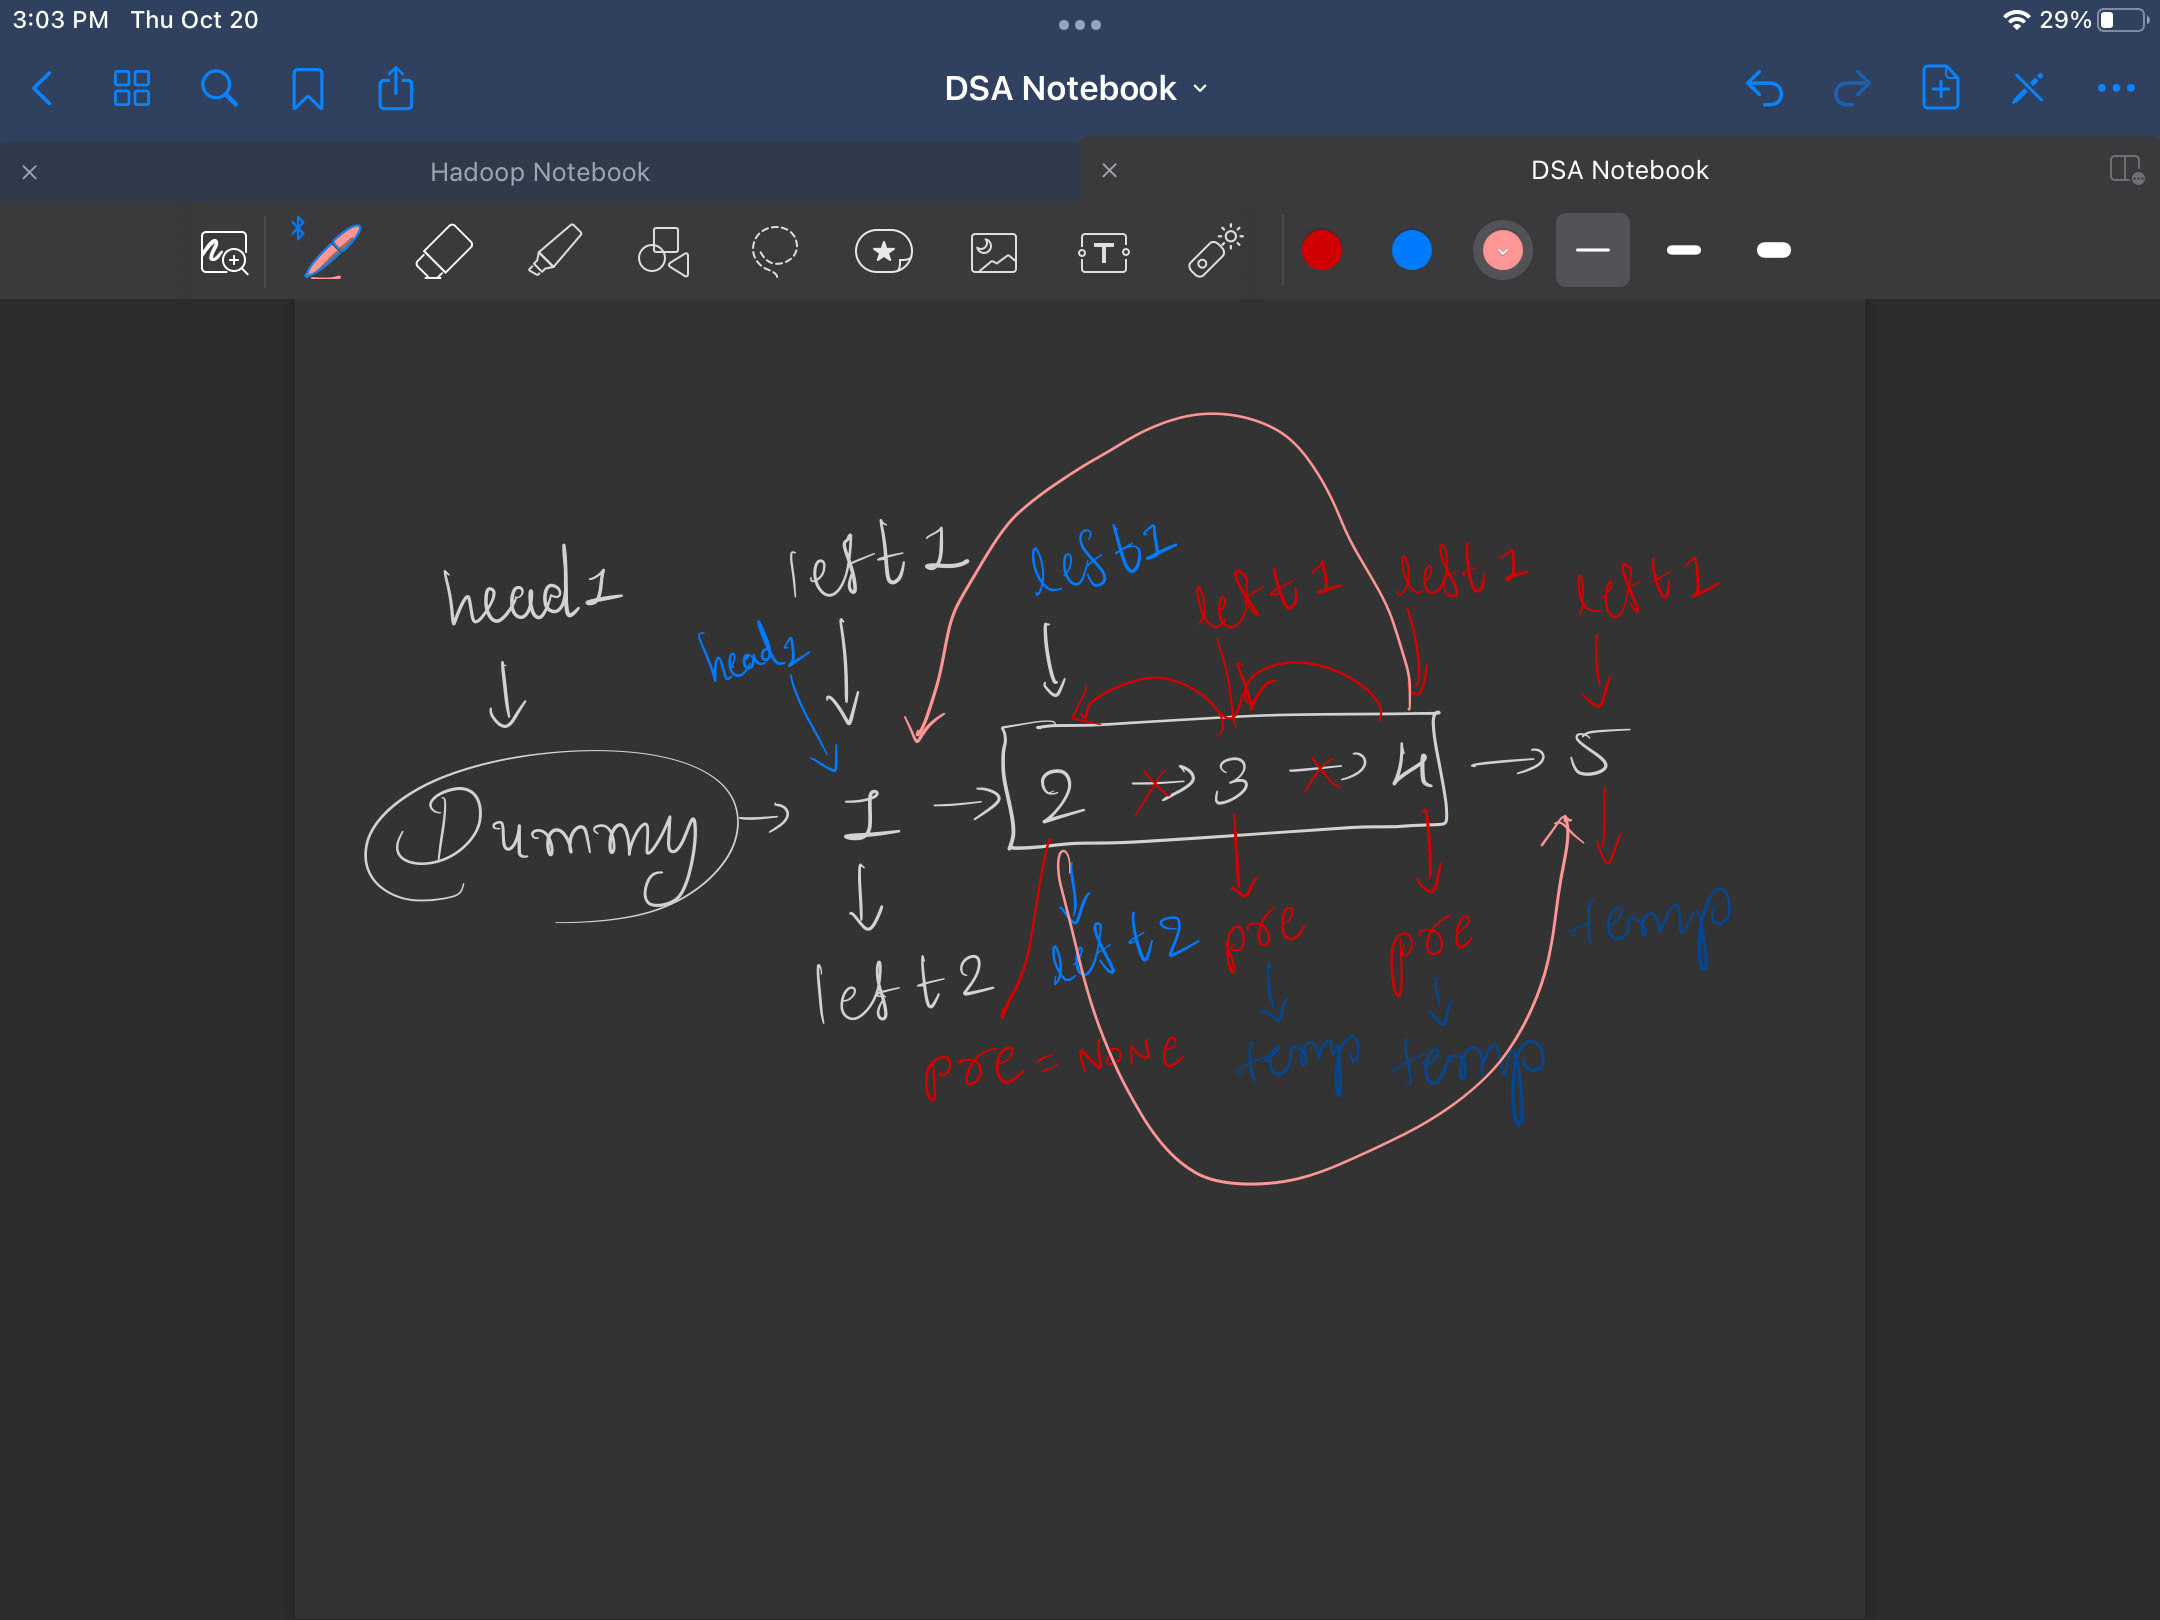 3:03 PM Thu Oct 20
29%
DSA Notebook
Hadoop Notebook
DSA Notebook
T
head1
left 1
left1
left 1
left 1
left 1
head1
Dummy → 1 → 2 → 3 → 4 → 5
left 2
left 2
pre
pre
temp
pre = NONE
temp
temp